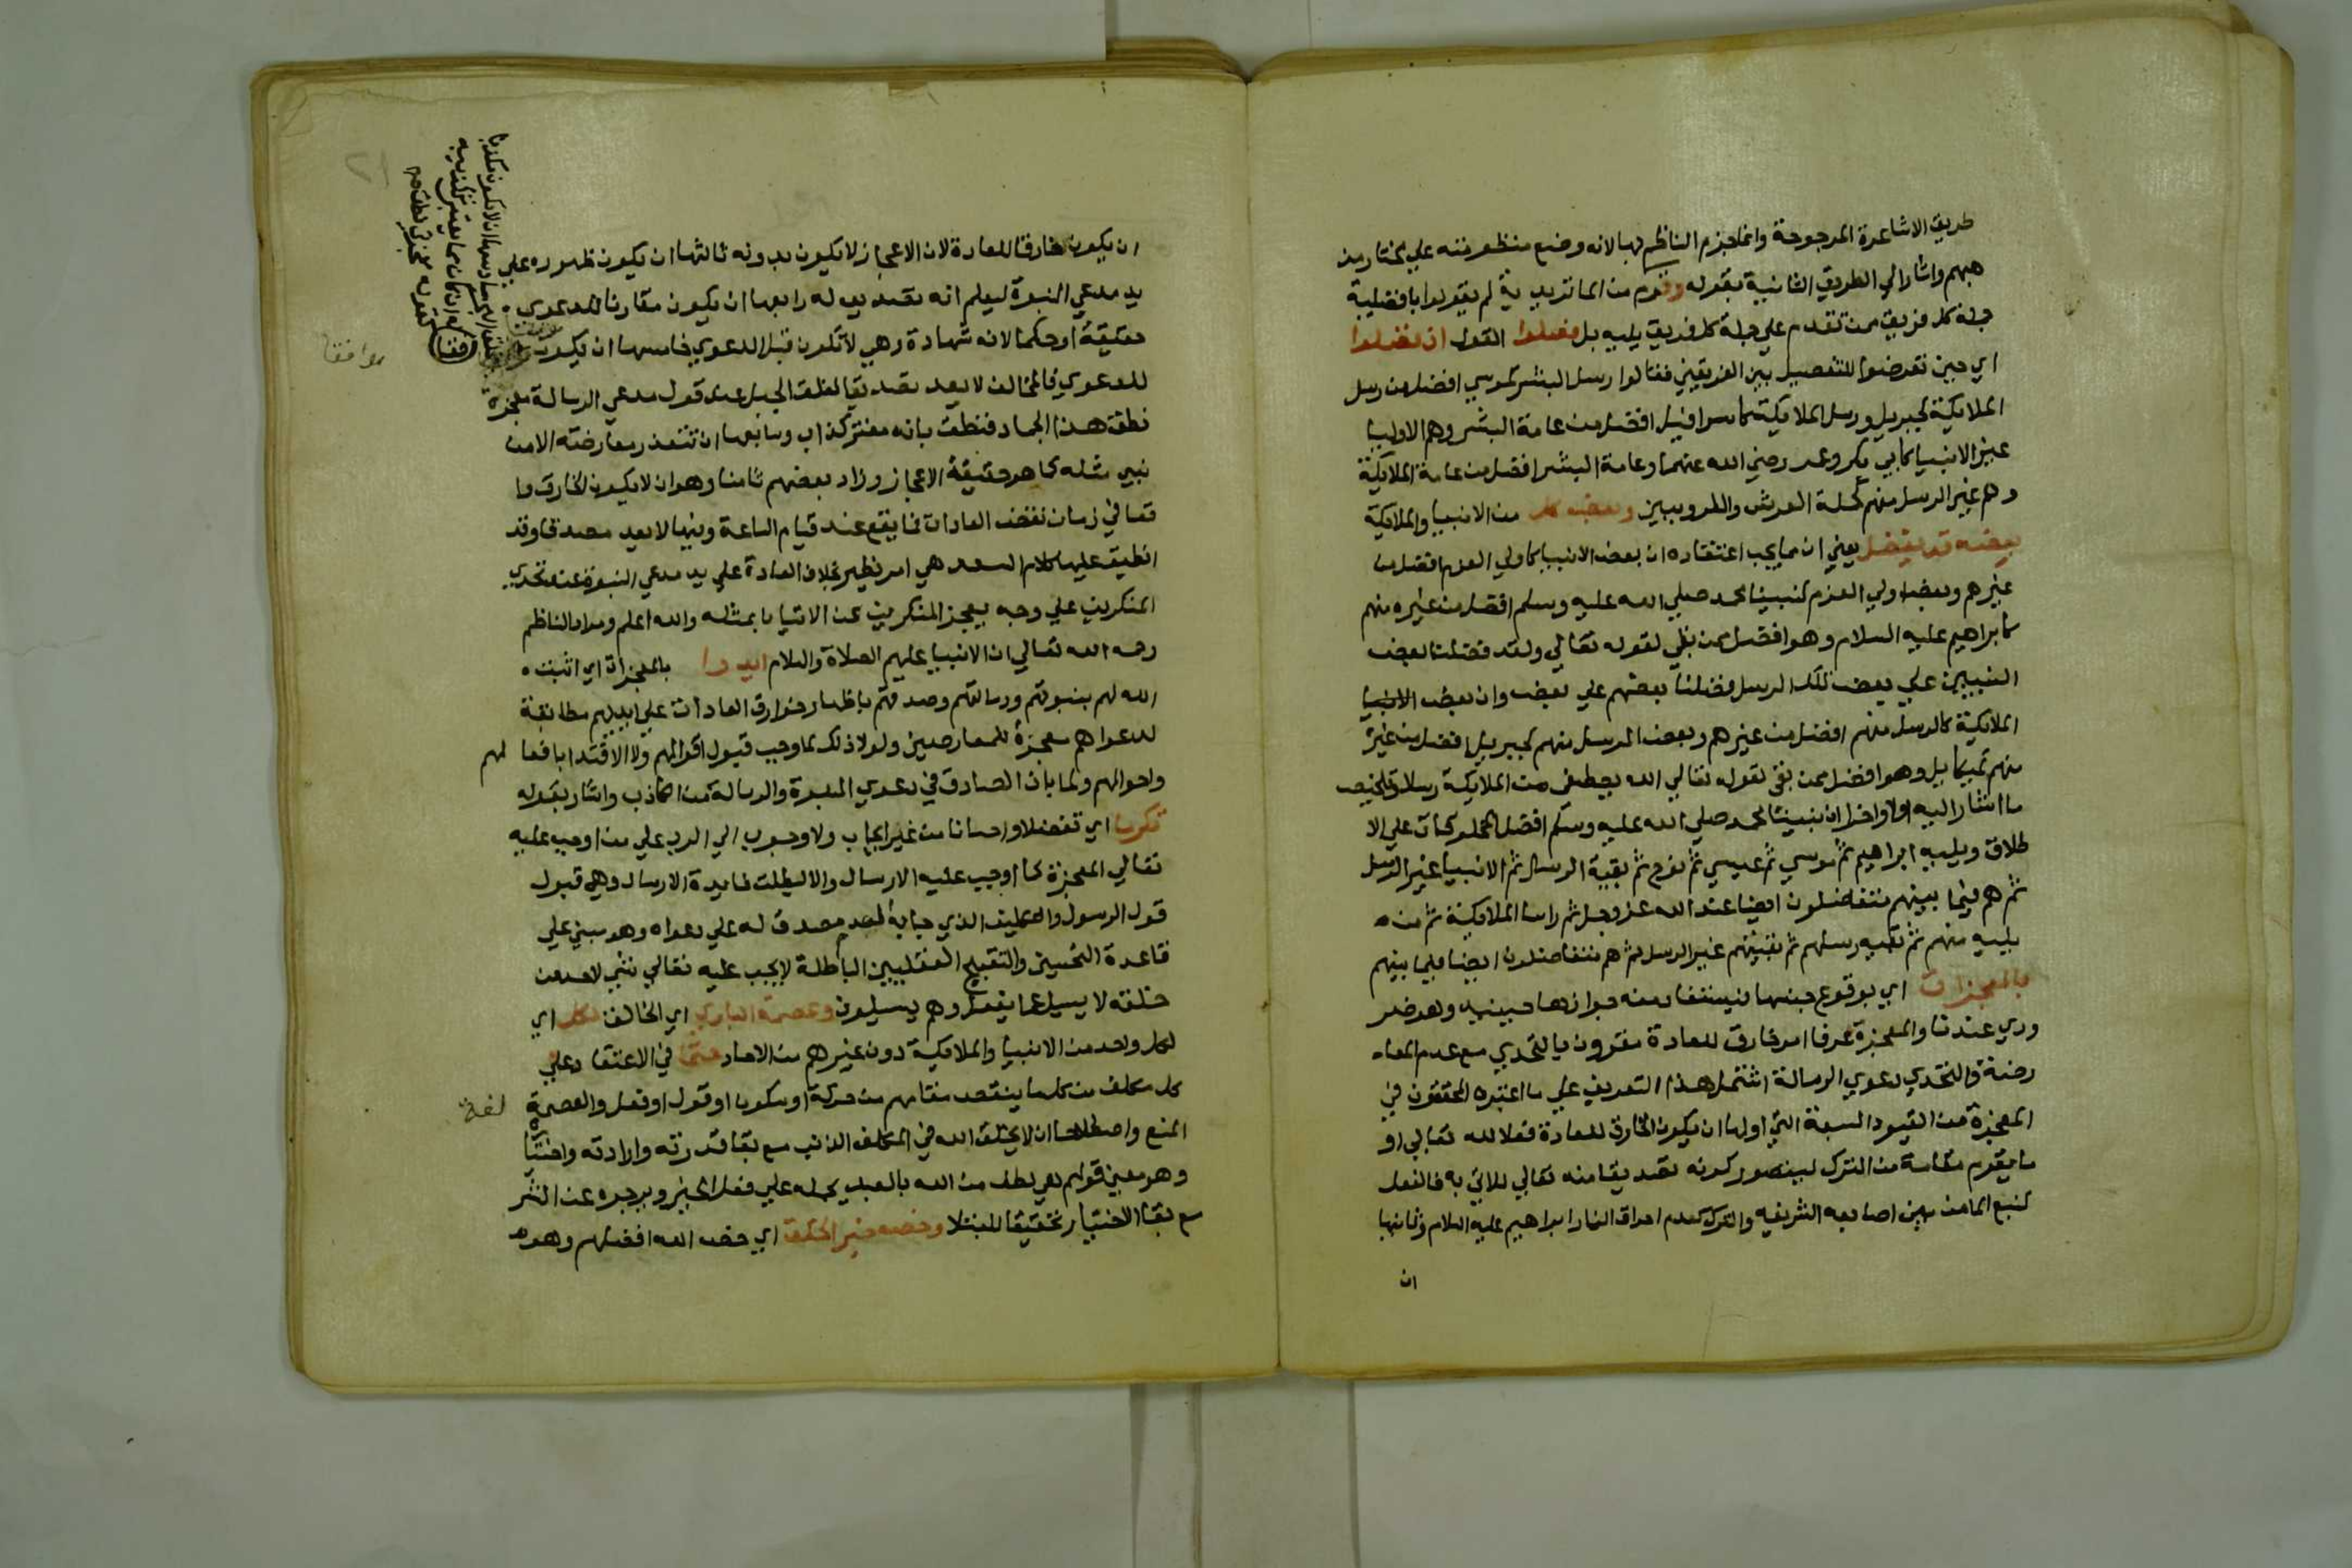 طريق الاشاعرة المرجوحة وانما جزم الناظم بها لانه وضع منظومته علي مختار من
هبهم واشار الي الطريق الثانية بقوله وقوم من الماتريدية لم يقولوا بافضلية
جملة كل فريق ممن تقدم علي جملة كل فريق يليه بل فصلوا القول اذ فضلوا
اي حين تعرضوا للتفصيل بين الفريقين فقالوا رسل البشر كموسي افضل من رسل
الملايكة كجبريل ورسل الملايكة كاسرافيل افضل من عامة البشر وهم الاوليا
غير الانبيا كابي بكر وعمر رضي الله عنهما وعامة البشر افضل من عامة الملايكة
وهم غير الرسل منهم كحملة العرش والكروبيين وبعض كل من الانبيا والملايكة
بعضه قد يفضل يعني ان مما يجب اعتقاده ان بعض الانبيا كاولي العزم افضل من
غيرهم وبعض اولي العزم كنبينا محمد صلي الله عليه وسلم افضل من غيره منهم
كابراهيم عليه السلام وهو افضل ممن بقي لقوله تعالي ولقد فضلنا بعض
النبيين علي بعض تلك الرسل فضلنا بعضهم علي بعض وان بعض الانبيا
الملايكة كالرسل منهم افضل من غيرهم وبعض الرسل منهم كجبريل افضل من غيره
منهم كميكايل وهو افضل ممن بقي لقوله تعالي الله يصطفي من الملايكة رسلا وتلخيص
ما اشار اليه اولا واخرا ان نبينا محمد صلي الله عليه وسلم افضل المخلوقات علي الا
طلاق ويليه ابراهيم ثم موسي ثم عيسي ثم نوح ثم بقية الرسل ثم الانبيا غير الرسل
ثم هم فيما بينهم متفاضلون ايضا عند الله عز وجل ثم راس الملايكة ثم من
يليه منهم ثم بقية رسلهم ثم بقيتهم غير الرسل ثم هم متفاضلون ايضا فيما بينهم
بالمعجزات اي بوقوع جنسها فيستفاد منه جوازها حينيذ وهو ضر
وري عندنا والمعجزة عرفا امر خارق للعادة مقرون بالتحدي مع عدم المعا
رضة والتحدي دعوي الرسالة اشتمل هذا التعريف علي ما اعتبره المحققون في
المعجزة من القيود السبعة التي اولها ان يكون الخارق للعادة فعلا لله تعالي او
ما يقوم مقامه من الترك ليتصور كونه تصديقا منه تعالي للاتي به فالفعل
كنبع الما من بين اصابعه الشريفه والترك كعدم احراق النار ابراهيم عليه السلام وثانيها
ان
ان يكون خارقا للعادة لان الاعجاز لا يكون بدونه ثالثها ان يكون ظهوره علي
يد مدعي النبوة ليعلم انه تصديق له رابعها ان يكون مقارنا للدعوي
حقيقة او حكما لانه شهادة وهي لا تكون قبل الدعوي خامسها ان يكون
موافقا
للدعوي فالمخالف لا يعد تصديقا كفلق الجبل عند قول مدعي الرسالة معجزة
نطق هذا الجماد فنطق بانه مفتر كذاب وسابعها ان تتعذر معارضته الا من
نبي مثله كما هو حقيقة الاعجاز وزاد بعضهم ثامنا وهو ان لا يكون الخارق وا
قعا في زمان نقض العادات فما يقع عند قيام الساعة وفيها لا يعد مصدقا وقد
انطبق عليها كلام السعد هي امر يظهر بخلاف العادة علي يد مدعي النبوة عند تحدي
المنكرين علي وجه يعجز المنكرين عن الاتيان بمثله والله اعلم ومراد الناظم
رحمه الله تعالي ان الانبيا عليهم الصلاة والسلام ايدوا بالمعجزات اي اثبت
الله لهم نبوتهم ورسالتهم وصدقهم باظهار خوارق العادات علي ايديهم مطابقة
لدعواهم معجزة للمعارضين ولولا ذلك لما وجب قبول اقوالهم ولا الاقتدا بافعا لهم
واحوالهم ولما بان الصادق في دعوي النبوة والرسالة من الكاذب واشار بقوله
تكرما اي تفضلا واحسانا من غير ايجاب ولا وجوب الي الرد علي من اوجب عليه
تعالي المعجزة كما اوجب عليه الارسال والا لبطلت فايدة الارسال وهي قبول
قول الرسول والتكليف الذي جا به لعدم مصدق له علي دعواه وهو مبني علي
قاعدة التحسين والتقبيح العقليين الباطلة لا يجب عليه تعالي شي لاحد من
خلقه لا يسيل عما يفعل وهم يسيلون وعصمة الباري اي الخالف لكل اي
لكل واحد من الانبيا والملايكة دون غيرهم من الاحاد حتما في الاعتقاد علي
كل مكلف من كل ما ينقص مقامهم من حركة او سكون او قول او فعل والعصمة لغة
المنع واصطلاحا ان لا يخلق الله في المكلف الذنب مع بقا قدرته وارادته واختيا
وهو معني قولهم هي لطف من الله بالعبد يحمله علي فعل الخير ويزجره عن الشر
مع بقا الاختيار تحقيقا للابتلا وخص خير الخلق اي خص الله افضلهم وهو
سادسها ان لا يكون مكذبا
له ان كان مما يعتبر تكذيبه
كقوله معجزتي نطق
٢١